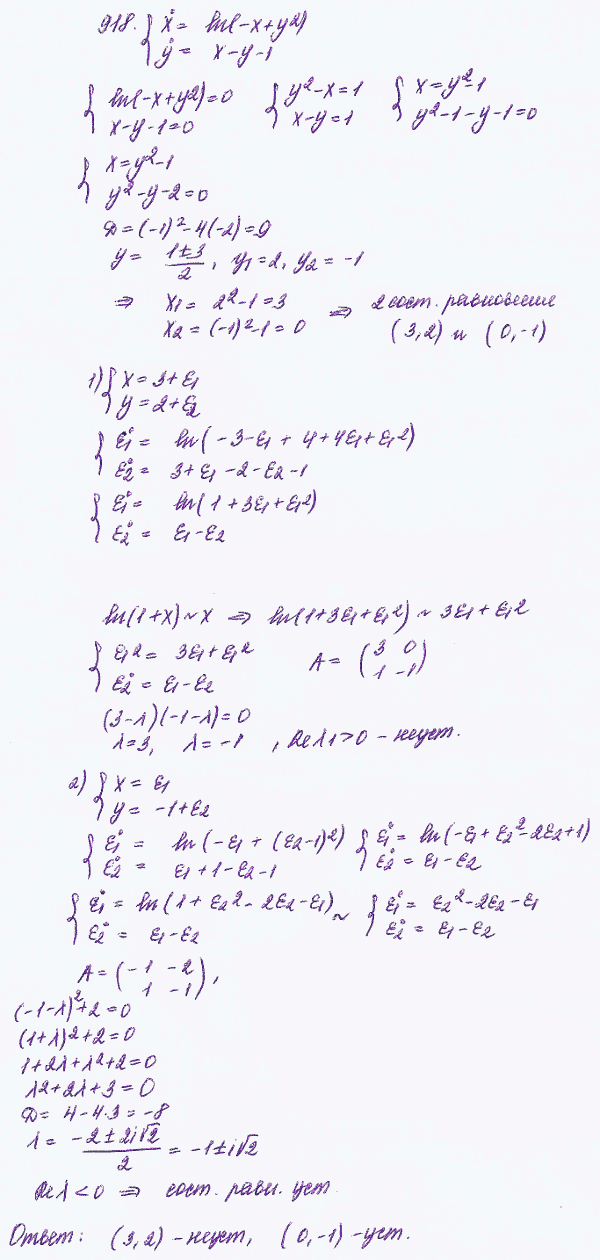 918. { ẋ = ln(-x+y²)
ẏ = x-y-1
{ ln(-x+y²)=0 { y²-x=1 { x=y²-1
x-y-1=0 x-y=1 y²-1-y-1=0
{ x=y²-1
y²-y-2=0
D=(-1)²-4(-2)=9
y= (1±3)/2, y₁=2, y₂=-1
⇒ x₁= 2²-1=3 ⇒ 2 сост. равновесия
x₂=(-1)²-1=0 (3,2) и (0,-1)
1) { x=3+ε₁
y=2+ε₂
{ ε̇₁= ln(-3-ε₁+4+4ε₁+ε₁²)
ε̇₂= 3+ε₁-2-ε₂-1
{ ε̇₁= ln(1+3ε₁+ε₁²)
ε̇₂= ε₁-ε₂
ln(1+x)~x ⇒ ln(1+3ε₁+ε₁²)~3ε₁+ε₁²
{ ε₁²= 3ε₁+ε₁² A= (3 0
ε̇₂= ε₁-ε₂ 1 -1)
(3-λ)(-1-λ)=0
λ=3, λ=-1, Reλ₁>0 - неуст.
2) { x= ε₁
y= -1+ε₂
{ ε̇₁= ln(-ε₁+(ε₂-1)²) { ε̇₁= ln(-ε₁+ε₂²-2ε₂+1)
ε̇₂= ε₁+1-ε₂-1 ε̇₂= ε₁-ε₂
{ ε̇₁= ln(1+ε₂²-2ε₂-ε₁) ~ { ε̇₁= ε₂²-2ε₂-ε₁
ε̇₂= ε₁-ε₂ ε̇₂= ε₁-ε₂
A=(-1 -2
1 -1),
(-1-λ)²+2=0
(1+λ)²+2=0
1+2λ+λ²+2=0
λ²+2λ+3=0
D= 4-4·3=-8
λ= (-2±2i√2)/2 = -1±i√2
Reλ<0 ⇒ сост. равн. уст
Ответ: (3,2) - неуст, (0,-1) - уст.